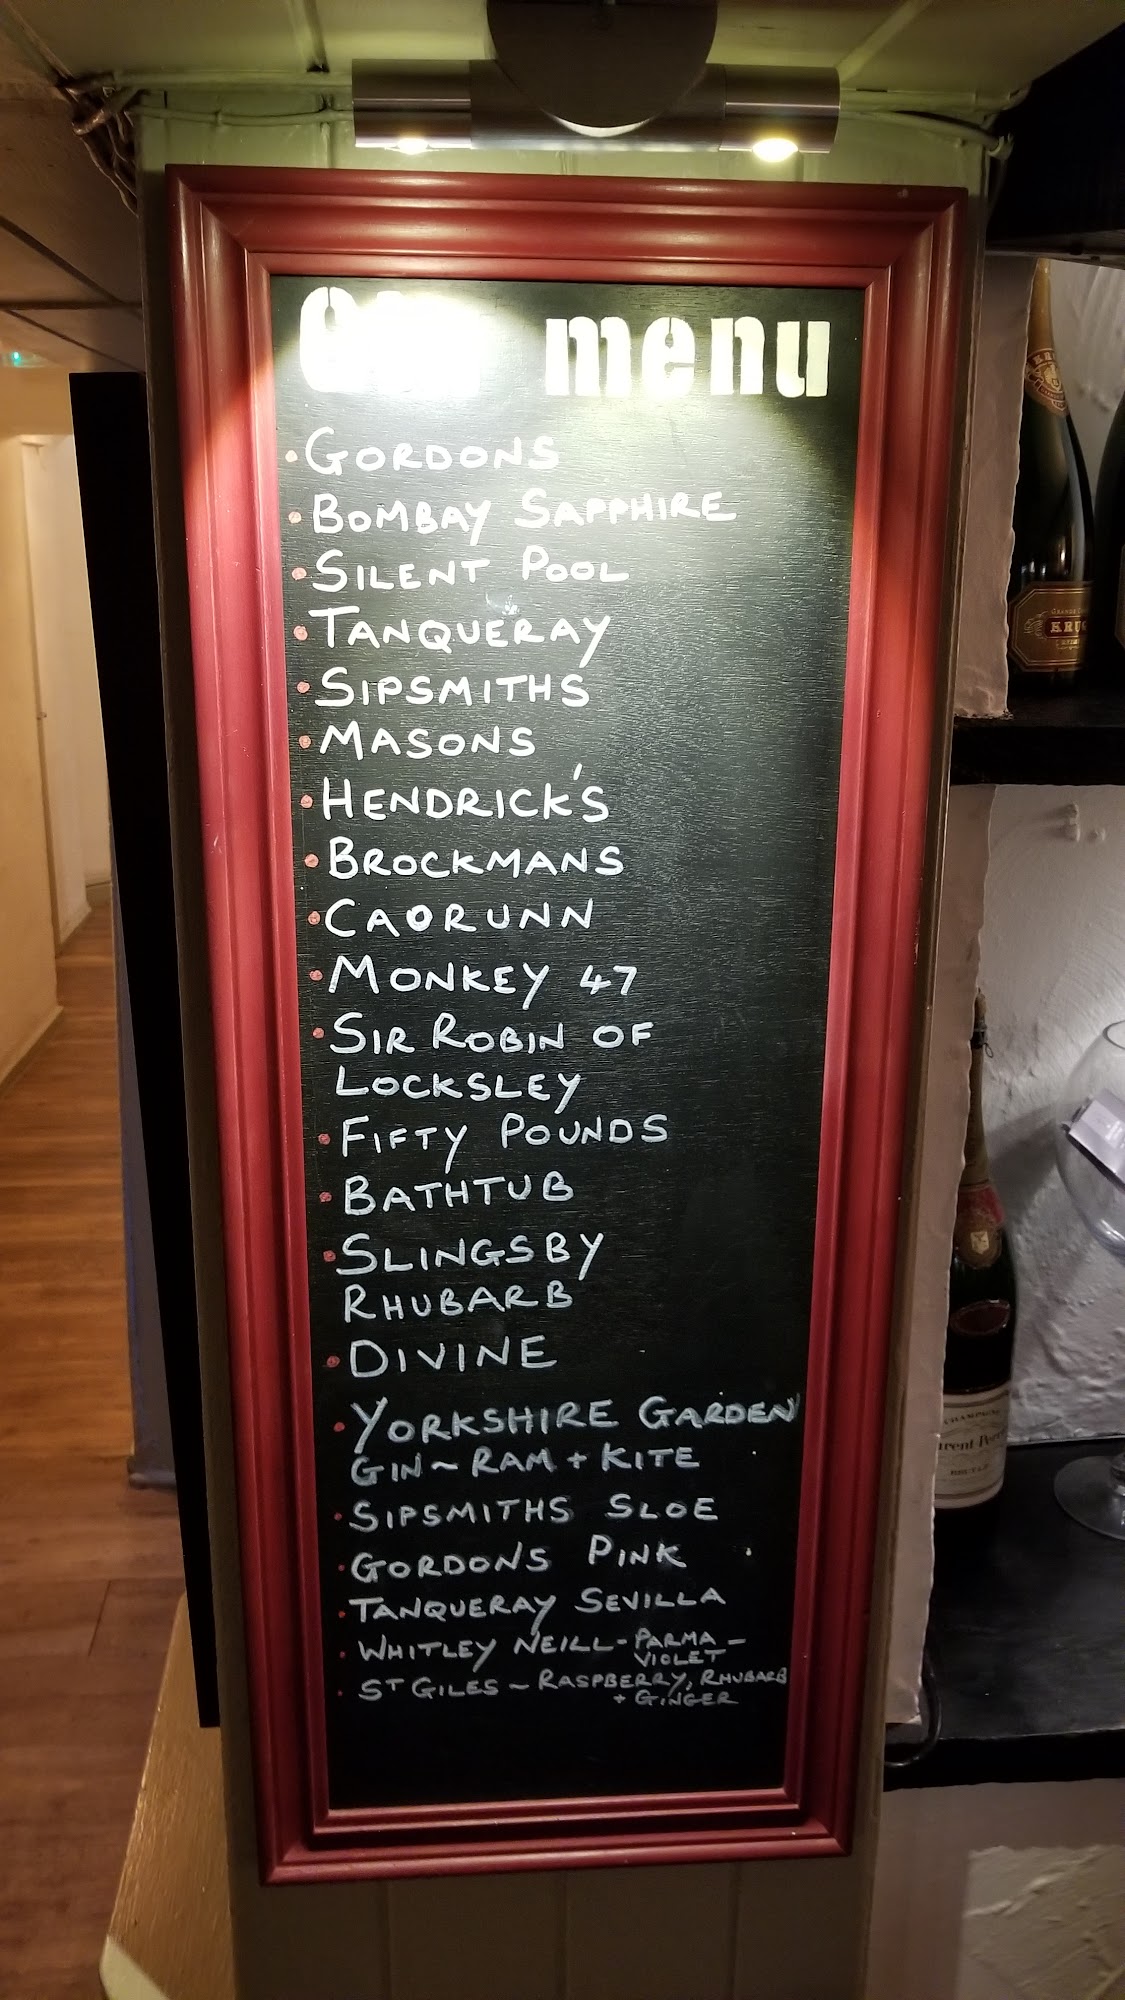 menu
GORDONS
BOMBAY SAPPHIRE
SILENT POOL
TANQUERAY
SIPSMITHS
MASONS
HENDRICK'S
BROCKMANS
CAORUNN
MONKEY 47
SIR ROBIN OF
LOCKSLEY
FIFTY POUNDS
BATHTUB
SLINGSBY
RHUBARB
DIVINE
YORKSHIRE GARDEN
GIN ~ RAM + KITE
SIPSMITHS SLOE
GORDONS PINK
TANQUERAY SEVILLA
WHITLEY NEILL - PARMA -
VIOLET
ST GILES ~ RASPBERRY, RHUBARB
+ GINGER
CHAMPAGNE
BRUT